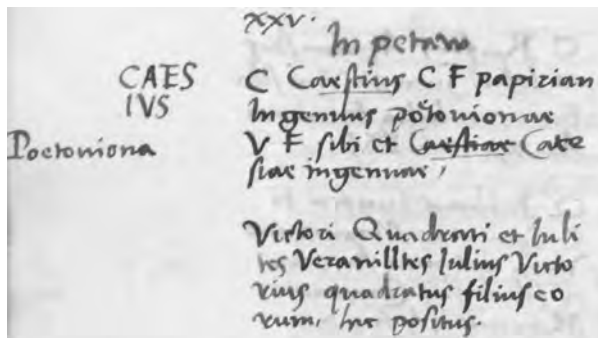 XXV.
In petaw
CAES
IVS
C Caestius C F papirian
Ingenuus poetonionae
Poetoniona
V F sibi et Caestiae Cate
siae ingenuae,
Victori Quadrati et Iuli
tes Veranilltes Iulius Victo
rius quadratus filius eo
rum, hic positus.